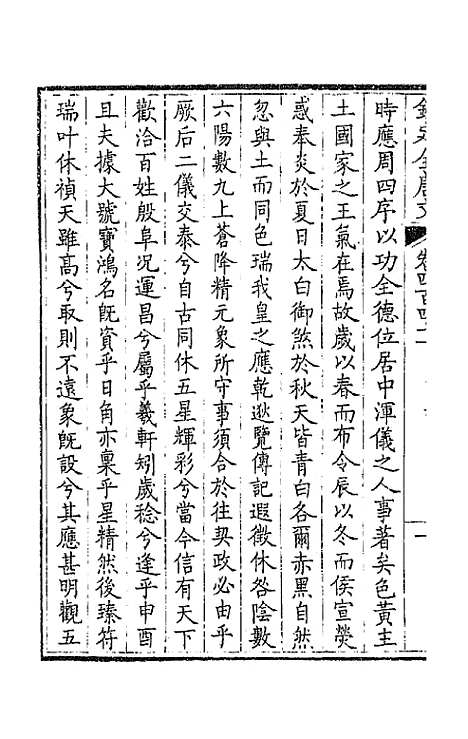 時應周四序以功全德位居中渾儀之人事著矣色黃主
土國家之王氣在焉故歲以春而布令辰以冬而俟宣熒
惑奉炎於夏日太白御煞於秋天皆青白各爾赤黑自然
忽與土而同色瑞我皇之應乾逖覽傳記遐徵休咎陰數
六陽數九上蒼降精元象所守事須合於往契政必由乎
厥后二儀交泰兮自古同休五星輝彩兮當今信有天下
歡洽百姓殷阜况運昌兮屬乎羲軒矧歲稔兮逢乎申酉
且夫據大號寶鴻名旣資乎日角亦稟乎星精然後臻符
瑞叶休禎天雖高兮取則不遠象旣設兮其應甚明觀五